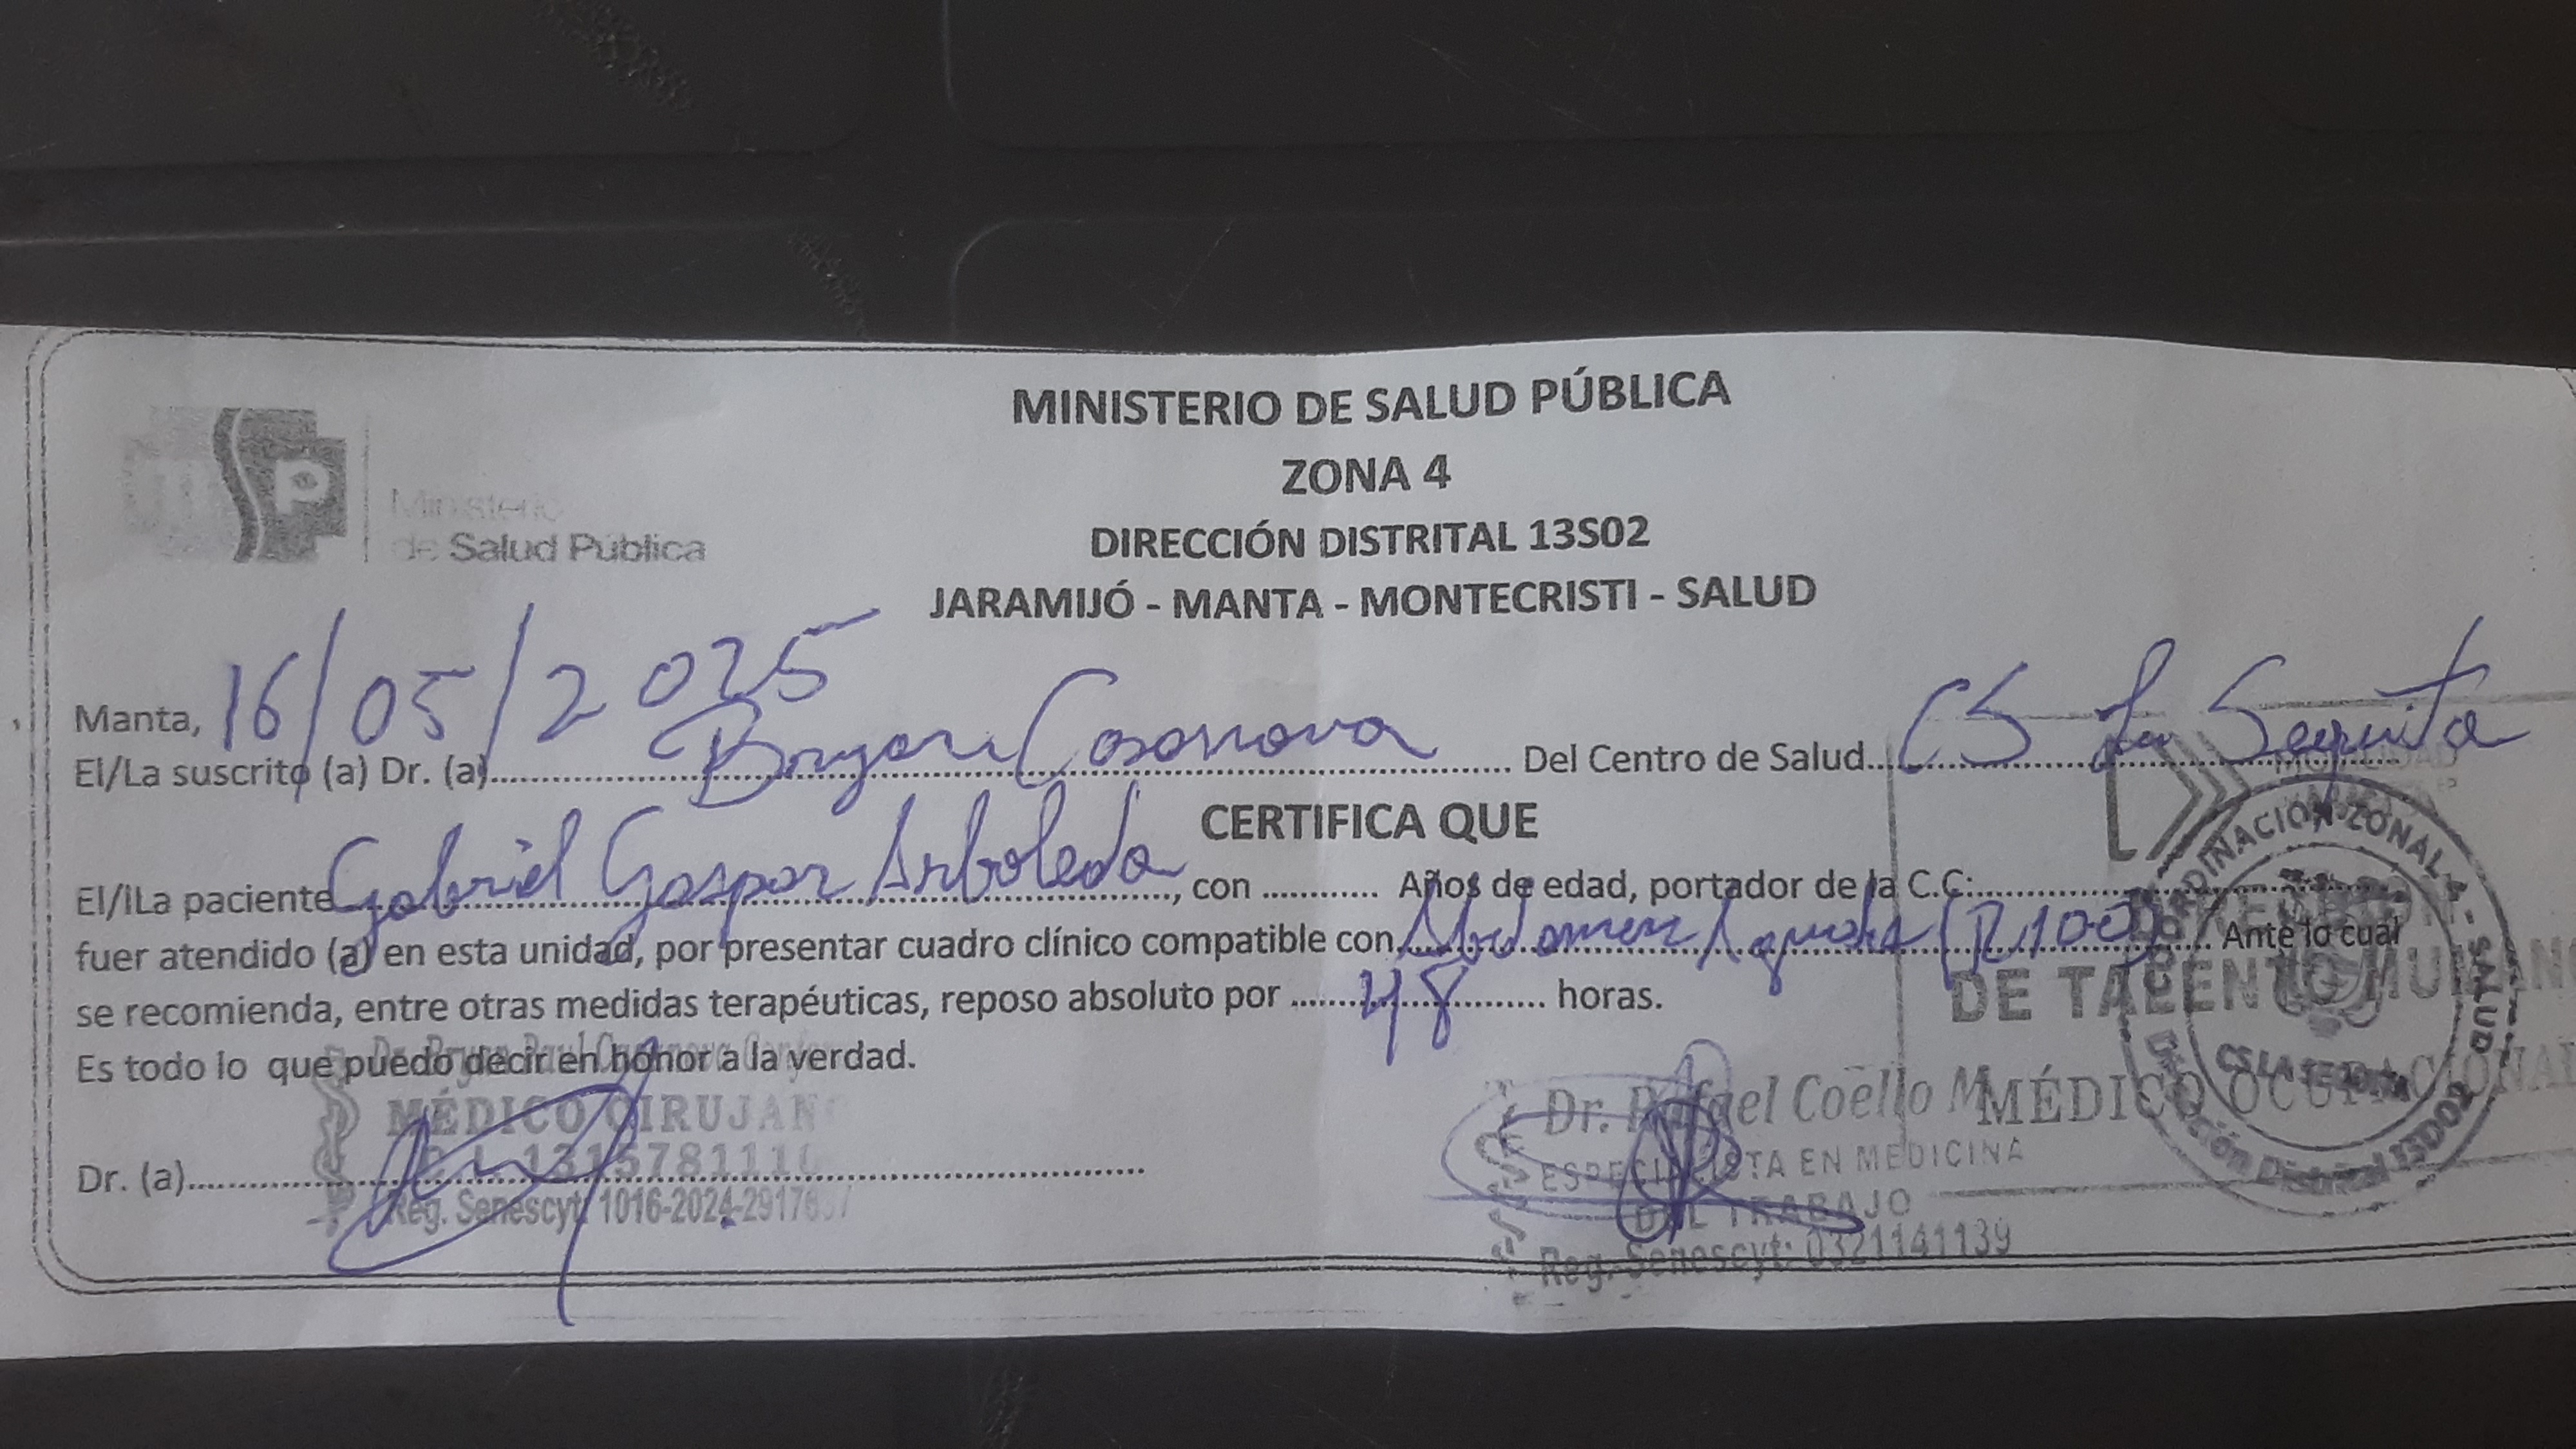 Ministerio
de Salud Pública
MINISTERIO DE SALUD PÚBLICA
ZONA 4
DIRECCIÓN DISTRITAL 13S02
JARAMIJÓ - MANTA - MONTECRISTI - SALUD
Manta, 16/05/2025
El/La suscrito (a) Dr. (a)........ Bryan Casanova ........ Del Centro de Salud.. CS
CERTIFICA QUE
El/lLa paciente Gabriel Gaspar Arboleda, con ........... Años de edad, portador de la C.C.
fuer atendido (a) en esta unidad, por presentar cuadro clínico compatible con Abdomen agudo (R100) Ante lo cual
se recomienda, entre otras medidas terapéuticas, reposo absoluto por ....... 48 ........ horas.
Es todo lo que puedo decir en honor a la verdad.
Dr. (a)
MÉDICO CIRUJAN
Reg. Senescyt 1016-2024-29178
Dr. Coello
MÉDICO OCUPACIONAL
ESPECIALISTA EN MEDICINA
DEL TRABAJO
Reg. Senescyt: 0321141139
DE TALENTO HUMANO
COORDINACION ZONAL 4
SALUD